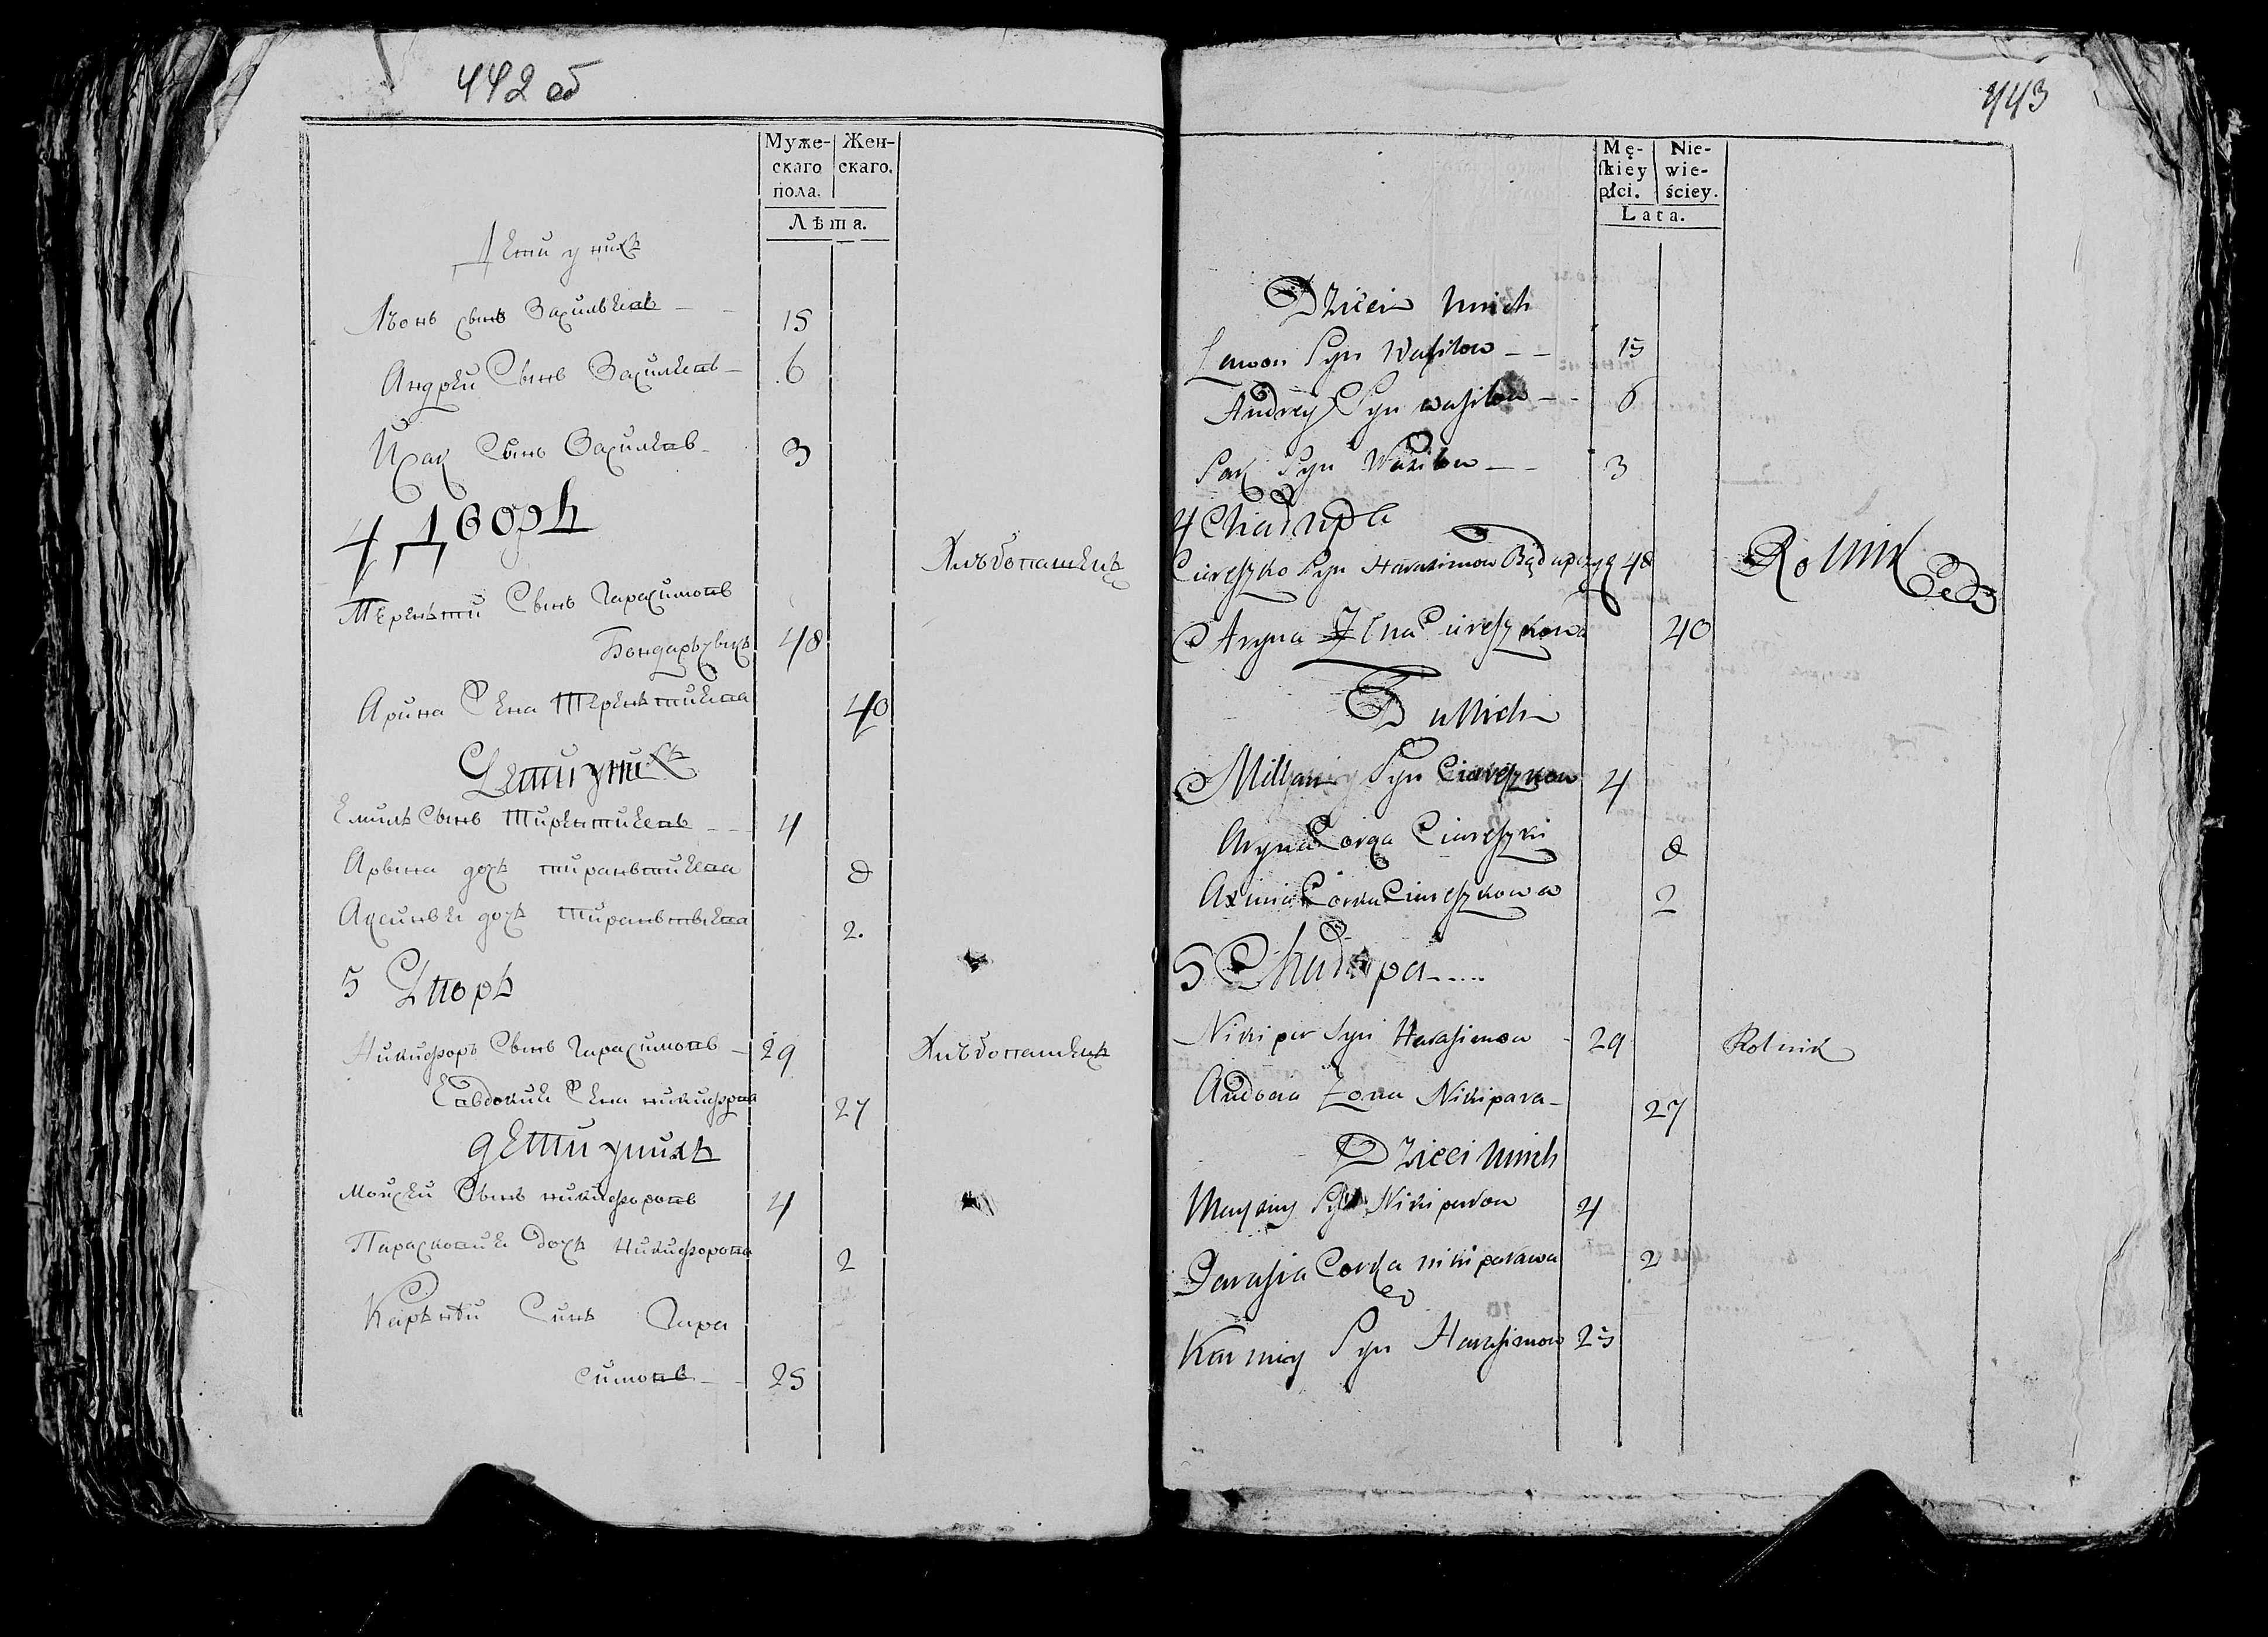 442 об
Муже-
скаго
пола.
Жен-
скаго.
Лѣта.
Дети у нихъ
Лѣонъ сынъ Василѣевъ — — 15
Андрей Сынъ Василѣевъ — 6
Исак Сынъ Василѣевъ - 3
4 Дворъ
Хлѣбопашецъ
Терентий Сынъ Гарасимовъ
Бондаръчыкъ 48
Арина Жена Терентиева 40
Дети у них
Емиль Сынъ Тирентиевъ - - 4
Арына дочъ тирантиева 8
Аксинья дочъ Тирантьева 2.
5 Дворъ
Никифоръ Сынъ Гарасимовъ - 29 Хлѣбопашецъ
Евдокия Жена никифорова 27
дети у нихъ
Мойсей Сынъ никифоровъ 4
Парасковия дочъ Никифорова 2
Сынъ Гара
симовъ - - 25
443
Mę-
skiey
płci.
Nie-
wie-
ściey.
Lata.
Dzieci u nich
Lawon Syn Wasilow - - 15
Andrey Syn wasilow - - 6
Sak Syn Wasilow - - 3
4 Chałupa
Ciereszko Syn Harasimow 48 Rolnik
Aryna Żona Cireszkowa 40
D u Nich
Millan Syn Ciereszkow 4
Aryna Corga Ciereszki 8
Axinia Corka Ciereszkowa 2
5 Chałupa .....
Nikipor Syn Harasimow - 29 Rolnik
Audocia Zona Nikipara - 27
Dzieci u nich
Maysiey Syn Nikiparow 4
Parasia Corka nikiparawa 2
Syn Harasimow 25